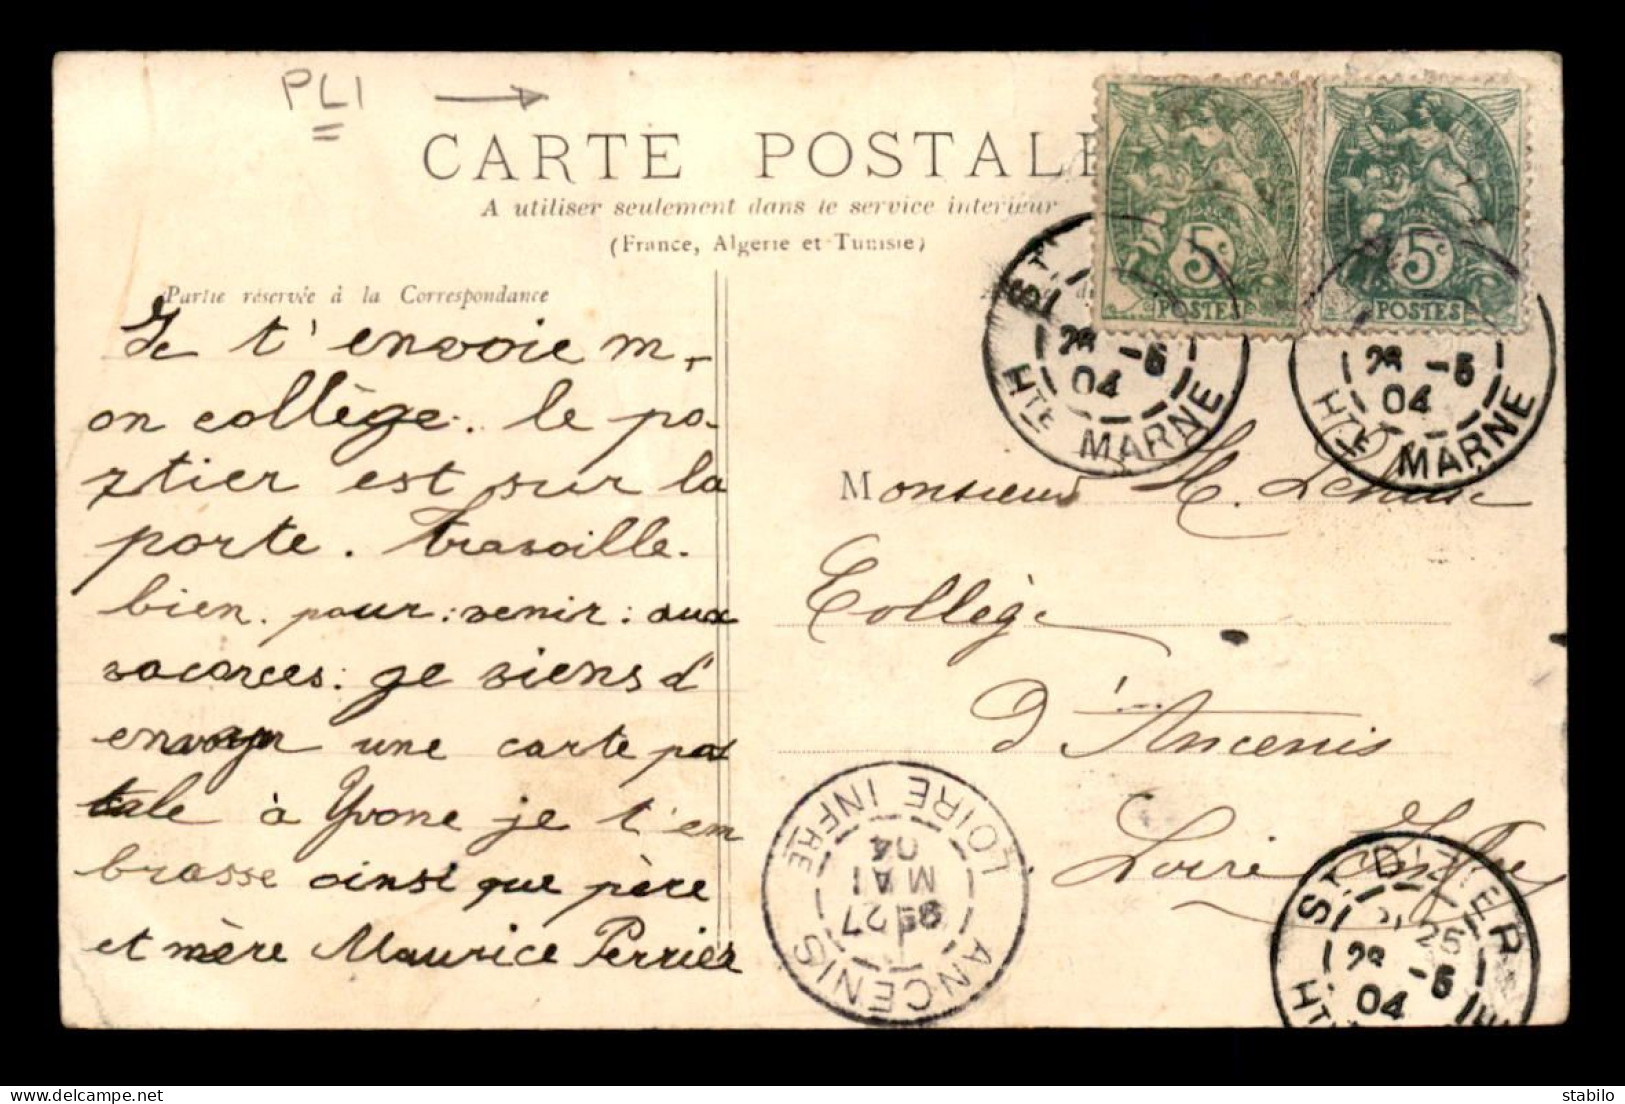 PLI
CARTE POSTALE
A utiliser seulement dans le service interieur
(France, Algerie et Tunisie)
Partie réservée à la Correspondance
Je t'envoie m-
on collège. le po-
rtier est sur la
porte. travaille.
bien. pour: venir: aux
vacances: je viens d'
envoyer une carte pos
tale à Yvone je t'em
brasse ainsi que père
et mère Maurice Perrier
5c
POSTES
5c
POSTES
ST
28 -5
04
HTE MARNE
28 -5
04
HTE MARNE
Monsieur H.
Collège
d'Ancenis
Loire Infre
ANCENIS
27
MAI
04
LOIRE INFRE
ST DIZIER
28 -5
04
HTE
delcampe.net
stabilo